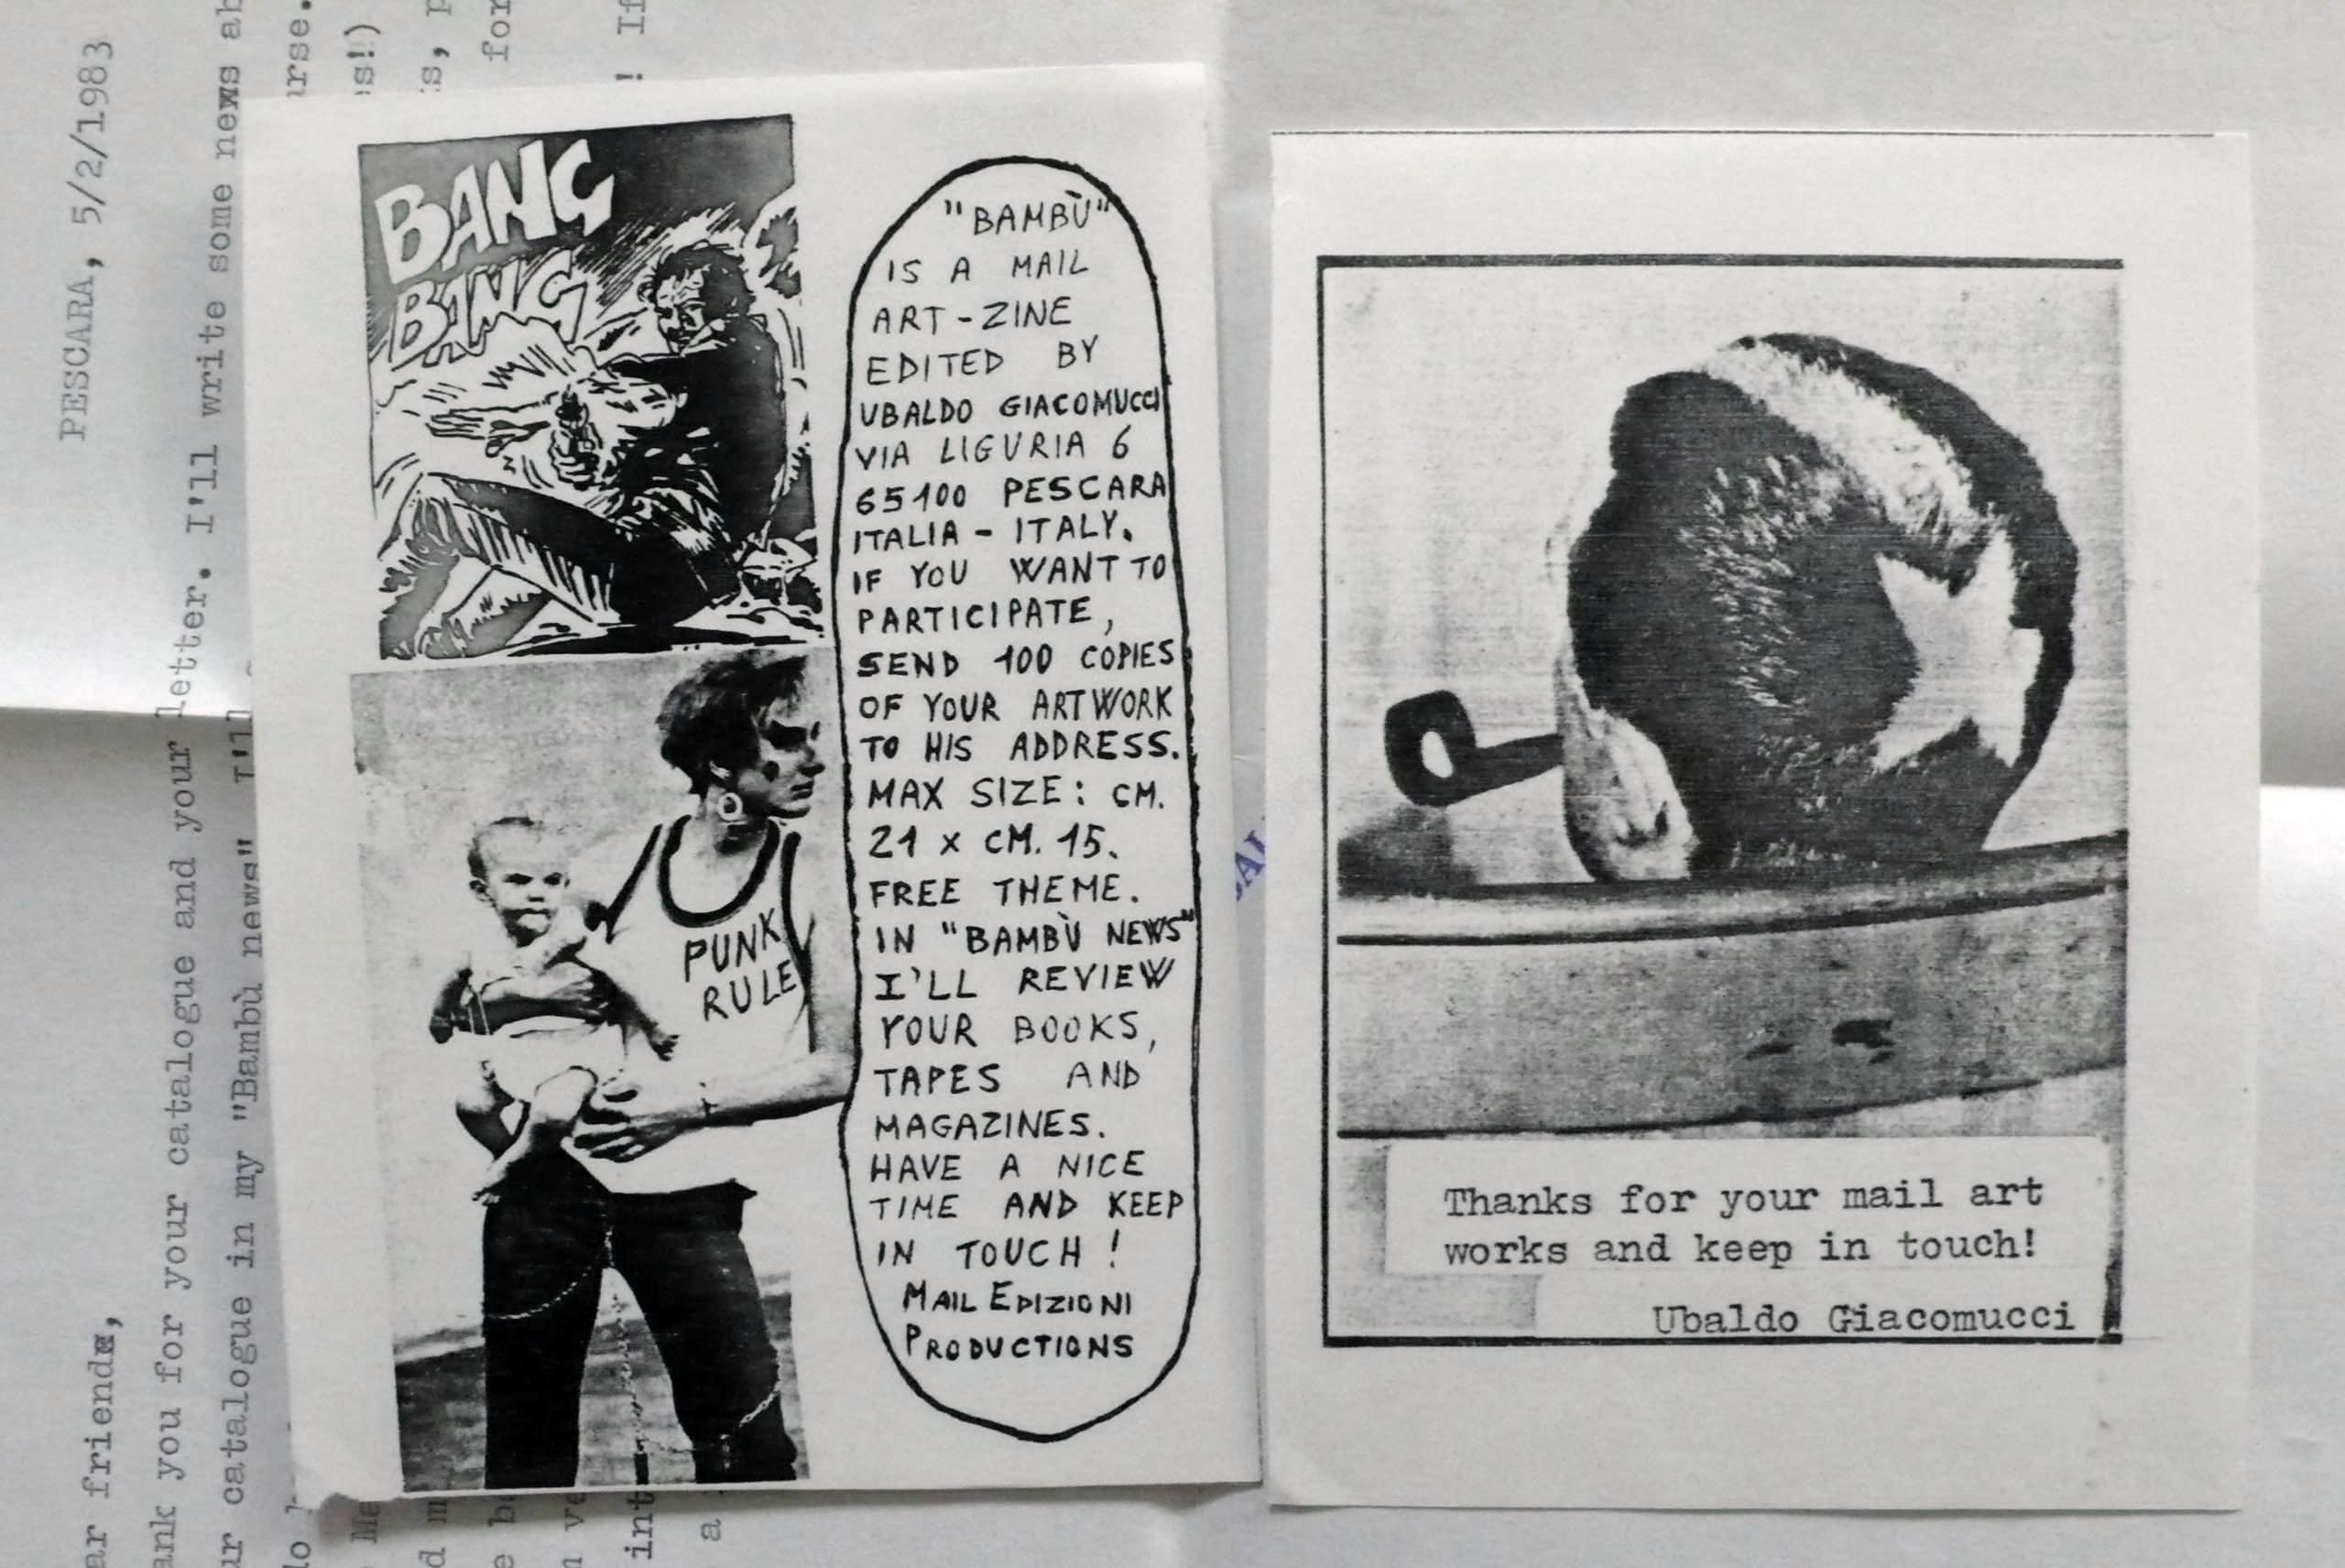 PESCARA, 5/2/1983
friend
you for your catalogue and your letter. I'll write some news
catalogue in my "Bambù news". I'll
for
! If
BANG
BANG
PUNK
RULE
"BAMBÙ"
IS A MAIL
ART-ZINE
EDITED BY
UBALDO GIACOMUCCI
VIA LIGURIA 6
65100 PESCARA
ITALIA - ITALY.
IF YOU WANT TO
PARTICIPATE,
SEND 100 COPIES
OF YOUR ARTWORK
TO HIS ADDRESS.
MAX SIZE: CM.
21 x CM. 15.
FREE THEME.
IN "BAMBÙ NEWS"
I'LL REVIEW
YOUR BOOKS,
TAPES AND
MAGAZINES.
HAVE A NICE
TIME AND KEEP
IN TOUCH!
MAIL EDIZIONI
PRODUCTIONS
Thanks for your mail art
works and keep in touch!
Ubaldo Giacomucci